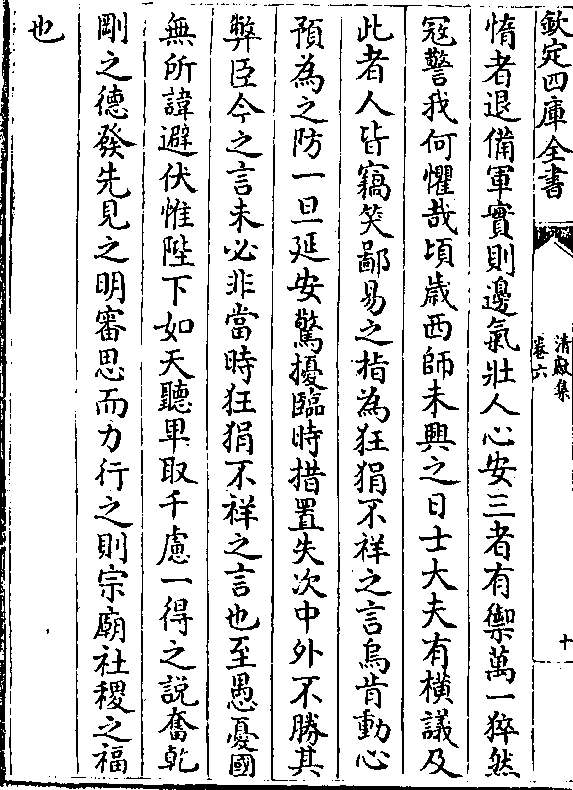 欽定四庫全書
清獻集
卷六
十
惰者退備軍實則邊氣壯人心安三者有禦萬一猝然
冦警我何懼哉頃歲西師未興之日士大夫有横議及
此者人皆竊笑鄙易之指為狂狷不祥之言烏肯動心
預為之防一旦延安驚擾臨時措置失次中外不勝其
弊臣今之言未必非當時狂狷不祥之言也至愚憂國
無所諱避伏惟陛下如天聽卑取千慮一得之說奮乾
剛之德發先見之明審思而力行之則宗廟社稷之福
也